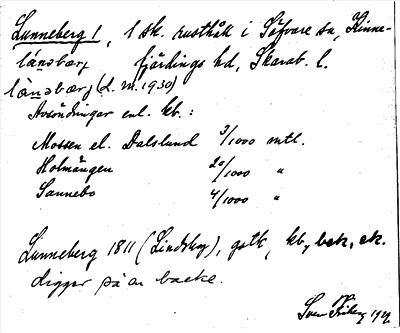 Lunneberg 1, 1 sk. rusthåll i Söfvare sn, Kinne-
fjärdings hd, Skarab. l.
(L. M. 1930)
Avsöndringar enl. kb.:
Mossen el. Dalslund 3/1000 mtl.
Holmängen 20/1000 "
Sannebo 4/1000 "
Lunneberg 1811 (Lindskog), gstk, kb, bek, ek.
Ligger på en backe.
Sven